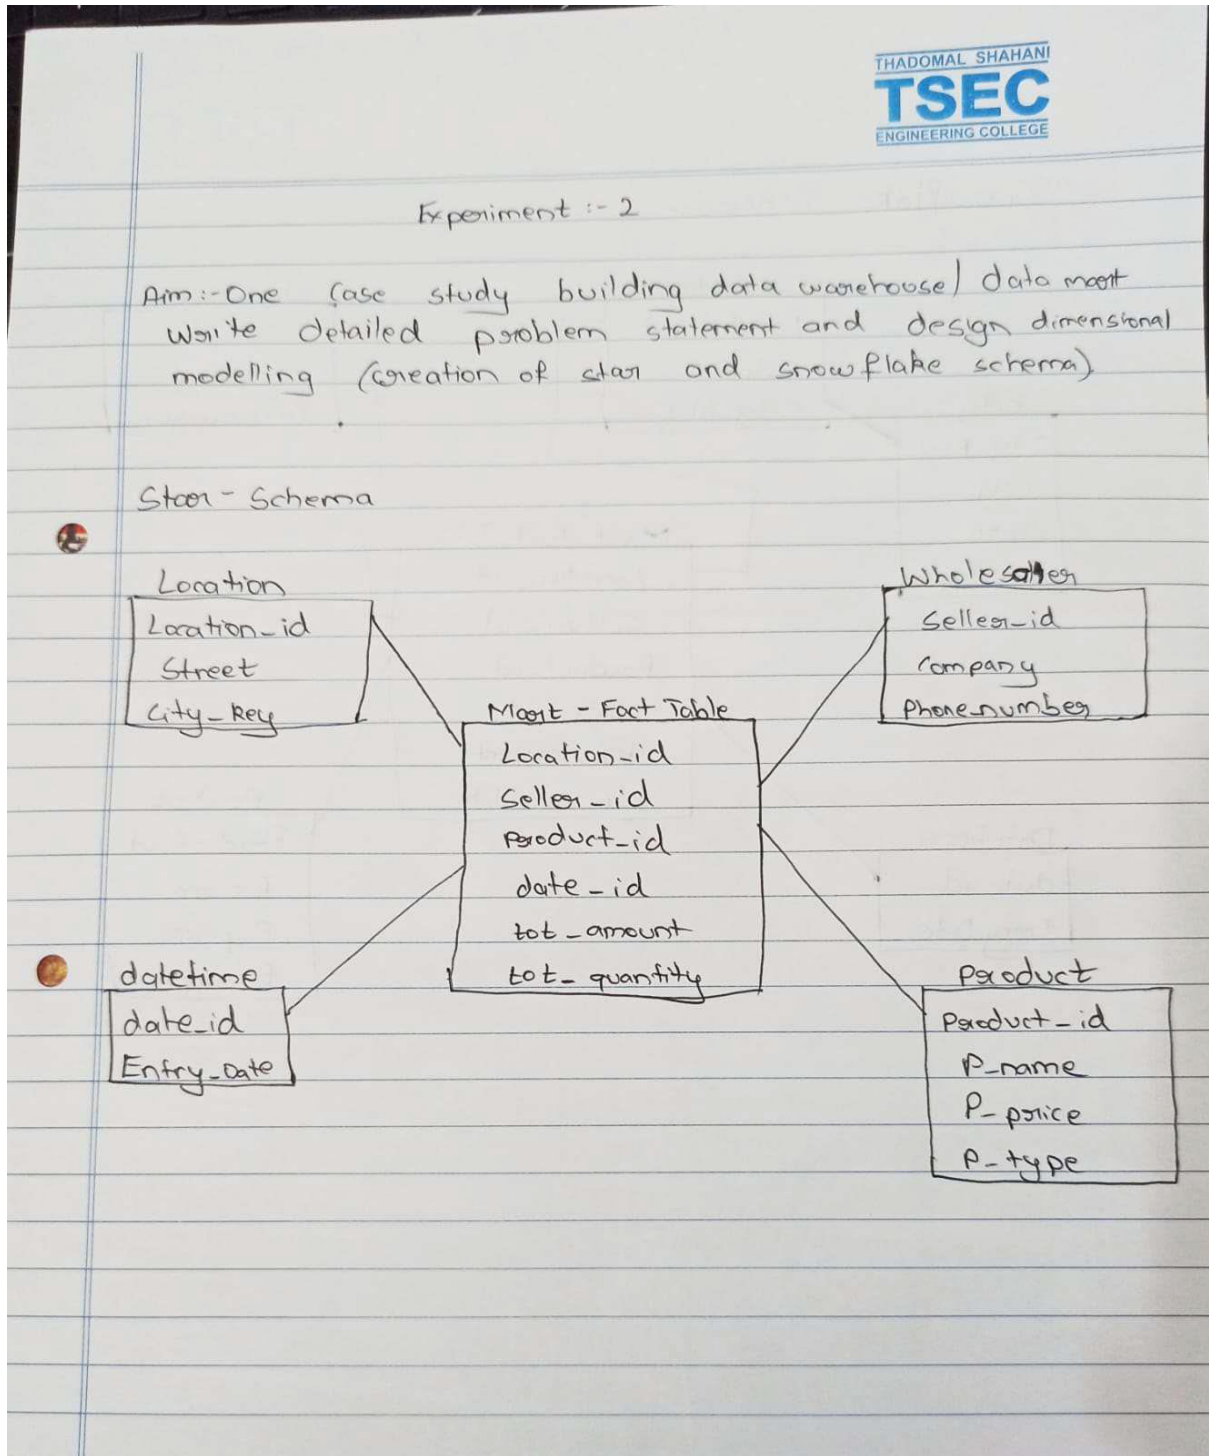 THADOMAL SHAHANI
TSEC
ENGINEERING COLLEGE
Experiment :- 2
Aim:- One case study building data warehouse/ data mart
Write detailed problem statement and design dimensional
modelling (creation of star and snowflake schema)
Star - Schema
Location
Location_id
Street
City_key
Wholesaller
Seller_id
Company
Phonenumber
Mart - Fact Table
Location_id
Seller_id
Product_id
date_id
tot_amount
tot_quantity
datetime
date_id
Entry_Date
Product
Product_id
P_name
P_price
P_type